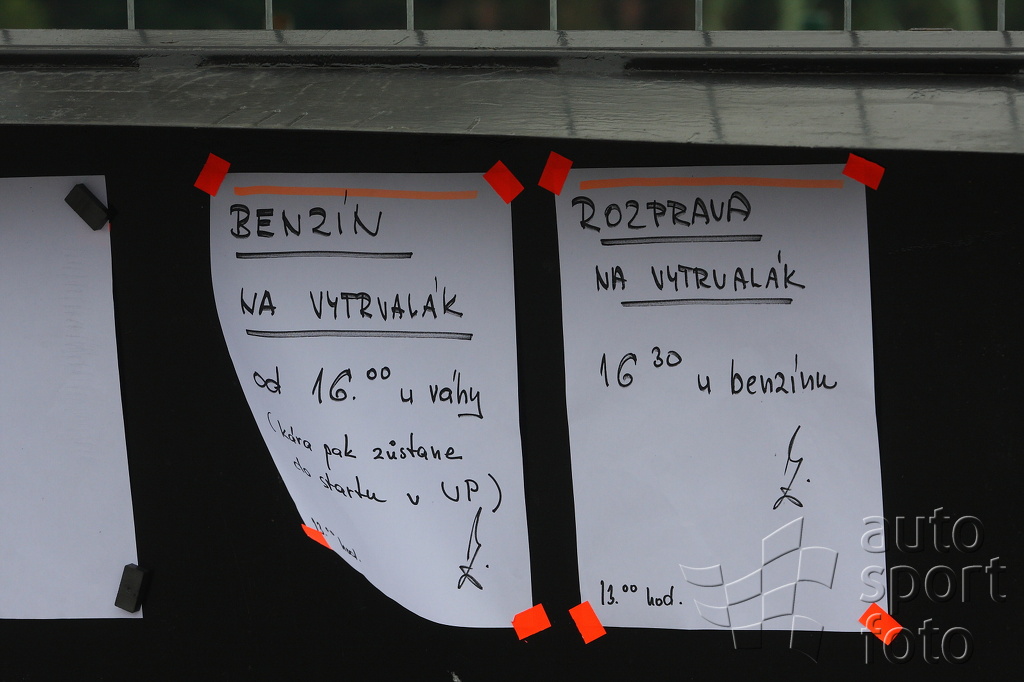 BENZÍN
NA VYTRVALÁK
od 16.00 u váhy
(kára pak zůstane
do startu v UP)
13.00 hod.
ROZPRAVA
NA VYTRVALÁK
16 30 u benzínu
13.00 hod.
auto
sport
foto